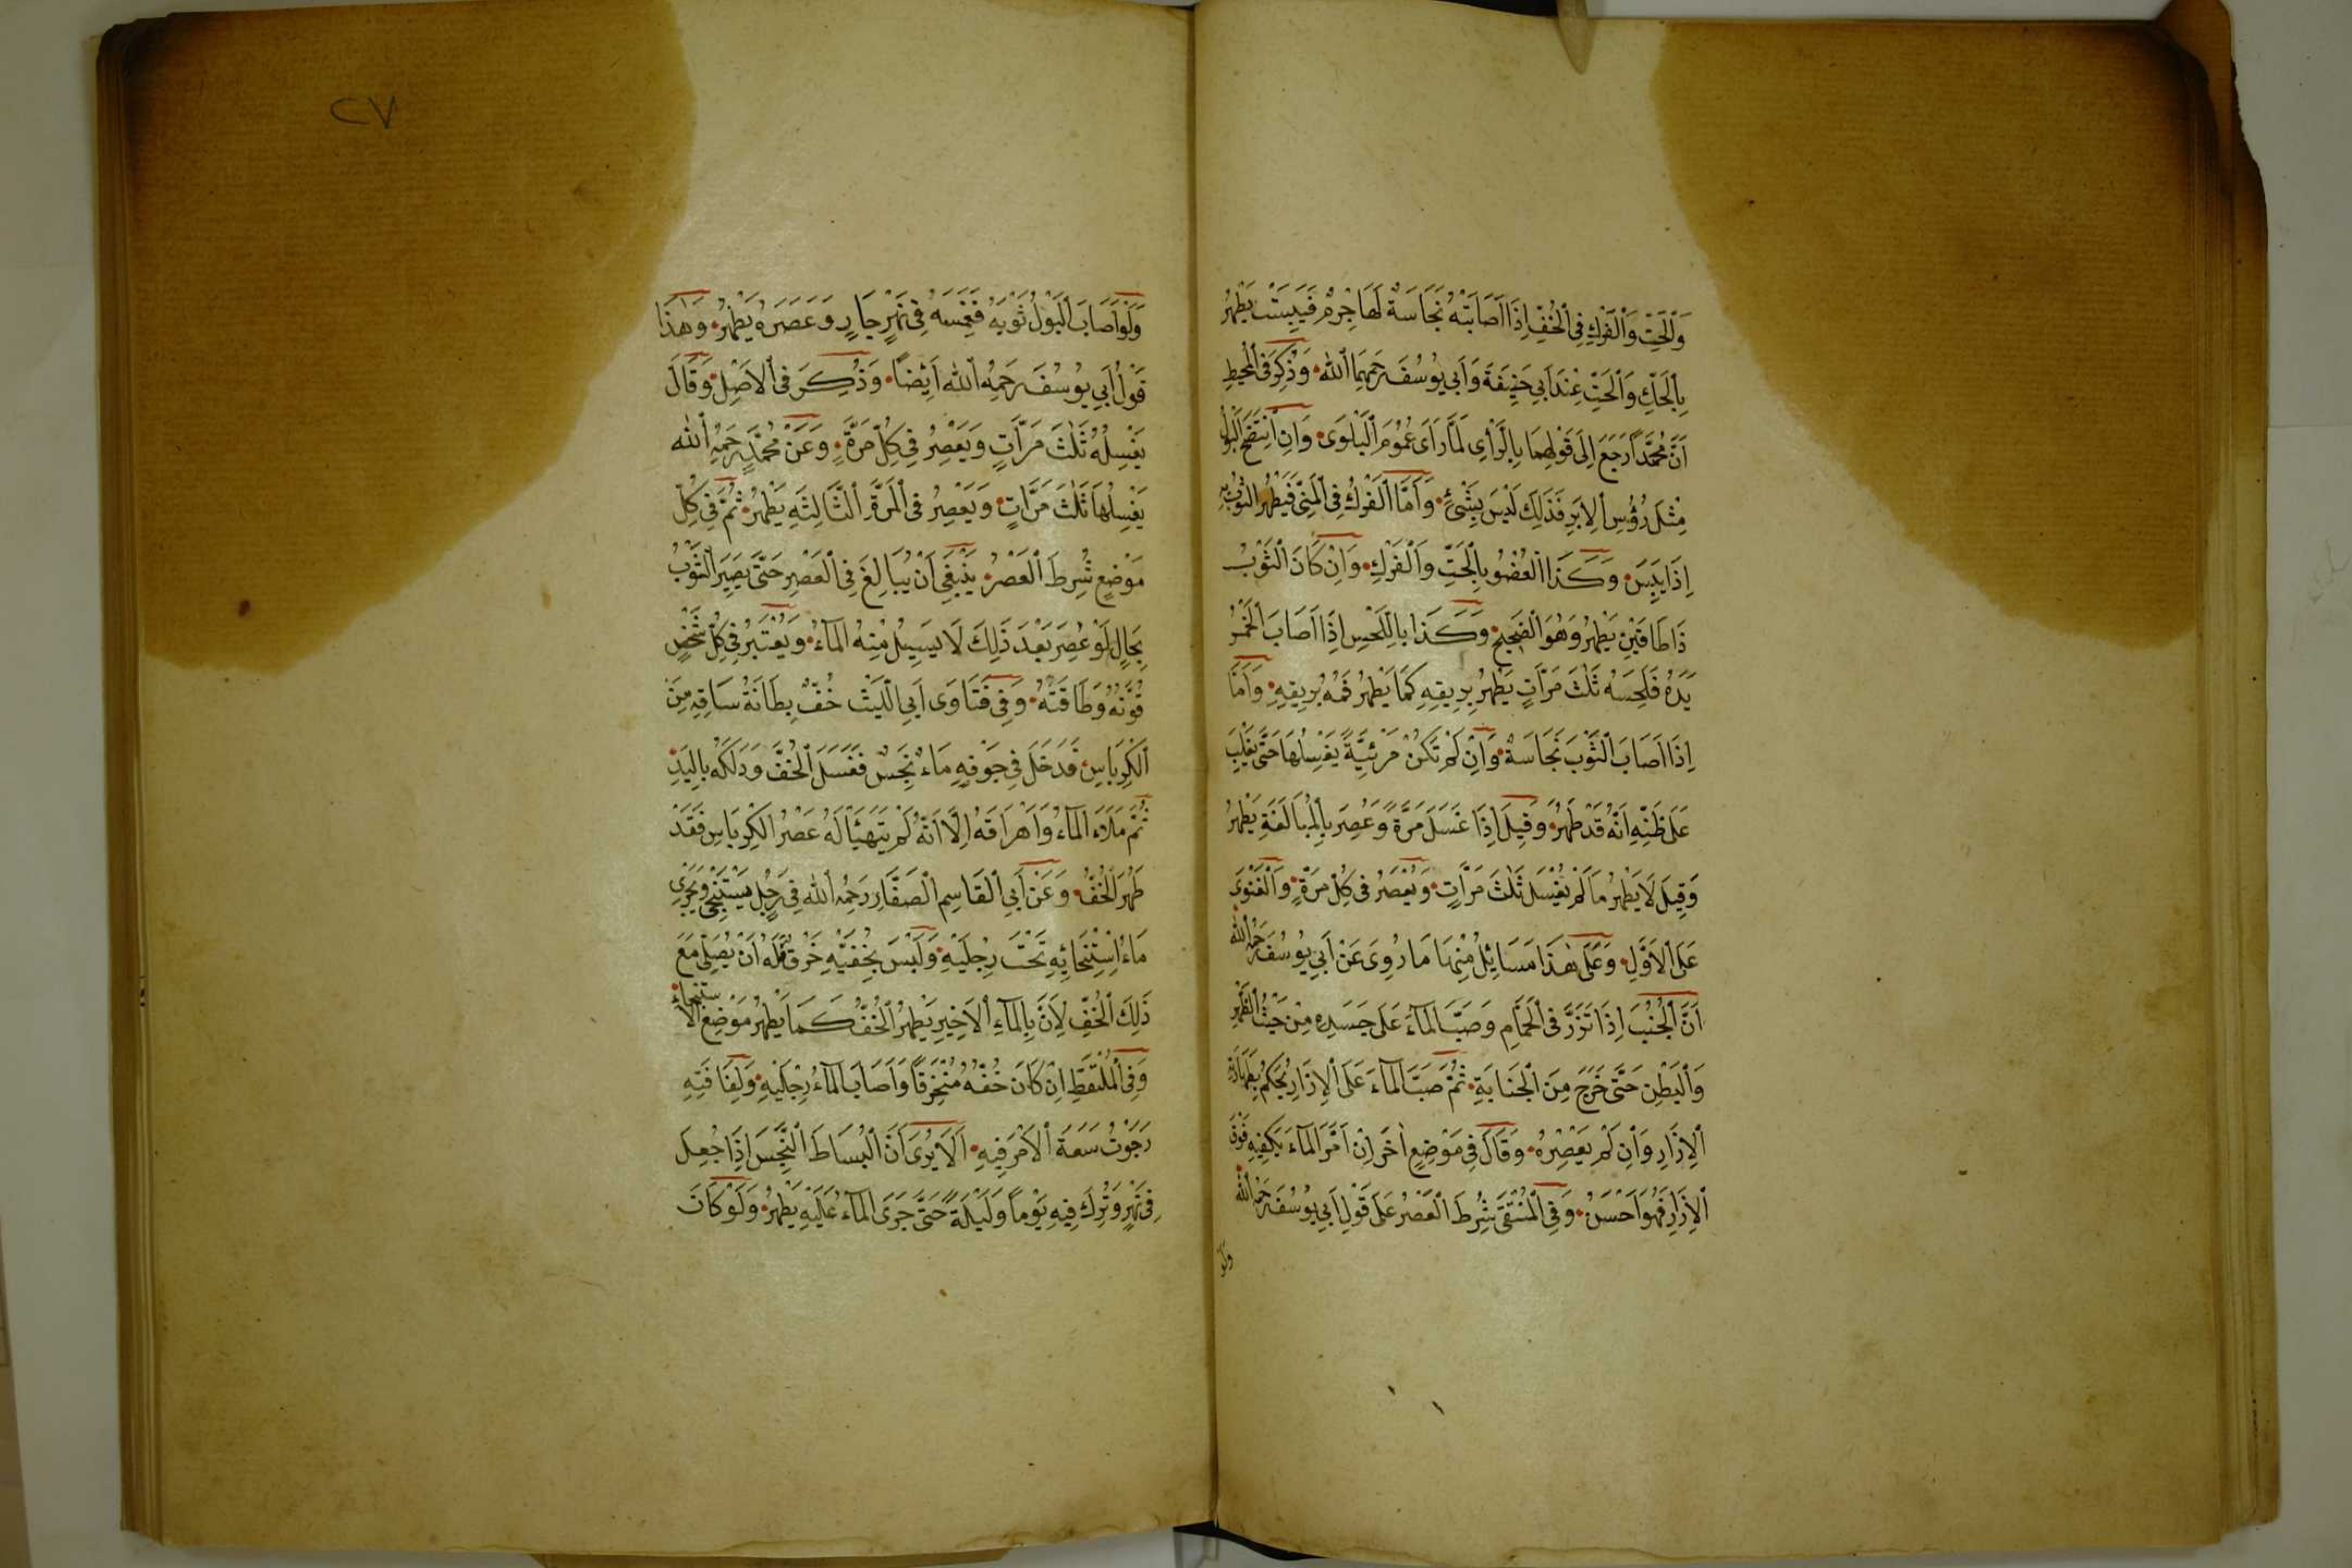 وَٱلْحَتِّ وَٱلْفَرْكِ فِى ٱلْخُفِّ اِذَا اَصَابَتْهُ نَجَاسَةٌ لَهَا جِرْمٌ فَيَبِسَتْ يَطْهُرُ
بِٱلْحَكِّ وَٱلْحَتِّ عِنْدَ اَبِى حَنِيفَةَ وَاَبِى يُوسُفَ رَحِمَهُمَا ٱللهُ وَذُكِرَ فِى ٱلْمُحِيطِ
اَنَّ مُحَمَّدًا رَجَعَ اِلَى قَوْلِهِمَا بِالرَّأْىِ لَمَّا رَاَى عُمُومَ ٱلْبَلْوَى وَاِنِ ٱنْتَضَحَ ٱلْبَوْلُ
مِثْلَ رُؤُسِ ٱلْاِبَرِ فَذَلِكَ لَيْسَ بِشَىْءٍ وَاَمَّا ٱلْفَرْكُ فِى ٱلْمَنِىِّ فَيَطْهُرُ ٱلثَّوْبُ بِهِ
اِذَا يَبِسَ وَكَذَا ٱلْعُضْوُ بِٱلْحَتِّ وَٱلْفَرْكِ وَاِنْ كَانَ ٱلثَّوْبُ
ذَا طَاقَيْنِ يَطْهُرُ وَهُوَ ٱلصَّحِيحُ وَكَذَا بِاللَّحْسِ اِذَا اَصَابَ ٱلْخَمْرُ
يَدَهُ فَلَحِسَهُ ثَلٰثَ مَرَّاتٍ يَطْهُرُ بِرِيقِهِ كَمَا يَطْهُرُ فَمُهُ بِرِيقِهِ وَاَمَّا
اِذَا اَصَابَ ٱلثَّوْبَ نَجَاسَةٌ وَاِنْ لَمْ تَكُنْ مَرْئِيَّةً يَغْسِلُهَا حَتَّى يَغْلِبَ
عَلَى ظَنِّهِ اَنَّهُ قَدْ طَهُرَ وَقِيلَ اِذَا غَسَلَ مَرَّةً وَعُصِرَ بِٱلْمُبَالَغَةِ يَطْهُرُ
وَقِيلَ لَا يَطْهُرُ مَا لَمْ يُغْسَلْ ثَلٰثَ مَرَّاتٍ وَيُعْصَرُ فِى كُلِّ مَرَّةٍ وَٱلْفَتْوَى
عَلَى ٱلْاَوَّلِ وَعَلَى هٰذَا مَسَائِلُ مِنْهَا مَا رُوِىَ عَنْ اَبِى يُوسُفَ رَحِمَهُ ٱللهُ
اَنَّ ٱلْجُنُبَ اِذَا تَزَّرَ فِى ٱلْحَمَّامِ وَصَبَّ ٱلْمَآءَ عَلَى جَسَدِهِ مِنْ حَيْثُ ٱلظَّهْرِ
وَٱلْبَطْنِ حَتَّى خَرَجَ مِنَ ٱلْجَنَابَةِ ثُمَّ صَبَّ ٱلْمَآءَ عَلَى ٱلْاِزَارِ يُحْكَمُ بِطَهَارَةِ
ٱلْاِزَارِ وَاِنْ لَمْ يَعْصِرْهُ وَقَالَ فِى مَوْضِعٍ اٰخَرَ اِنْ اَمَرَّ ٱلْمَآءَ بِكَفَّيْهِ فَوْقَ
ٱلْاِزَارِ فَهُوَ اَحْسَنُ وَفِى ٱلْمُنْتَقَى شُرِطَ ٱلْعَصْرُ عَلَى قَوْلِ اَبِى يُوسُفَ رَحِمَهُ ٱللهُ
وَلَوْ
٢٧
وَلَوْ اَصَابَ ٱلْبَوْلُ ثَوْبَهُ فَغَمَسَهُ فِى نَهْرٍ جَارٍ وَعَصَرَهُ يَطْهُرُ وَهٰذَا
قَوْلُ اَبِى يُوسُفَ رَحِمَهُ ٱللهُ اَيْضًا وَذُكِرَ فِى ٱلْاَصْلِ وَقَالَ
يَغْسِلُهُ ثَلٰثَ مَرَّاتٍ وَيَعْصِرُ فِى كُلِّ مَرَّةٍ وَعَنْ مُحَمَّدٍ رَحِمَهُ ٱللهُ
يَغْسِلُهَا ثَلٰثَ مَرَّاتٍ وَيَعْصِرُ فِى ٱلْمَرَّةِ ٱلثَّالِثَةِ يَطْهُرُ ثُمَّ فِى كُلِّ
مَوْضِعٍ شُرِطَ ٱلْعَصْرُ يَنْبَغِى اَنْ يُبَالِغَ فِى ٱلْعَصْرِ حَتَّى يَصِيرَ ٱلثَّوْبُ
بِحَالٍ لَوْ عُصِرَ بَعْدَ ذَلِكَ لَا يَسِيلُ مِنْهُ ٱلْمَآءُ وَيُعْتَبَرُ فِى كُلِّ شَخْصٍ
قُوَّتُهُ وَطَاقَتُهُ وَفِى فَتَاوَى اَبِى ٱللَّيْثِ خُفٌّ بِطَانَةُ سَاقِهِ مِنَ
ٱلْكِرْبَاسِ فَدَخَلَ فِى جَوْفِهِ مَاءٌ نَجِسٌ فَغَسَلَ ٱلْخُفَّ وَدَلَكَهُ بِالْيَدِ
ثُمَّ مَلَاَهُ ٱلْمَآءَ وَاَهْرَاقَهُ اِلَّا اَنَّهُ لَمْ يَتَهَيَّأْ لَهُ عَصْرُ ٱلْكِرْبَاسِ فَقَدْ
طَهُرَ ٱلْخُفُّ وَعَنْ اَبِى ٱلْقَاسِمِ ٱلصَّفَّارِ رَحِمَهُ ٱللهُ فِى رَجُلٍ يَسْتَنْجِى وَيَجْرِى
مَاءُ اِسْتِنْجَائِهِ تَحْتَ رِجْلَيْهِ وَلَيْسَ بِخُفَّيْهِ خَرْقٌ فَلَهُ اَنْ يُصَلِّىَ مَعَ
ذَلِكَ ٱلْخُفِّ لِاَنَّ بِالْمَآءِ ٱلْاَخِيرِ يَطْهُرُ ٱلْخُفُّ كَمَا يَطْهُرُ مَوْضِعُ ٱلْاِسْتِنْجَاءِ
وَفِى ٱلْمُلْتَقَطِ اِنْ كَانَ خُفُّهُ مُنْخَرِقًا وَاَصَابَ ٱلْمَآءُ رِجْلَيْهِ وَلِفَافَتِهِ
رَجَوْتُ سَعَةَ ٱلْاَمْرِ فِيهِ اَلَا يُرَى اَنَّ ٱلْبِسَاطَ ٱلنَّجِسَ اِذَا جُعِلَ
فِى نَهْرٍ وَتُرِكَ فِيهِ يَوْمًا وَلَيْلَةً حَتَّى جَرَى ٱلْمَآءُ عَلَيْهِ يَطْهُرُ وَلَوْ كَانَ